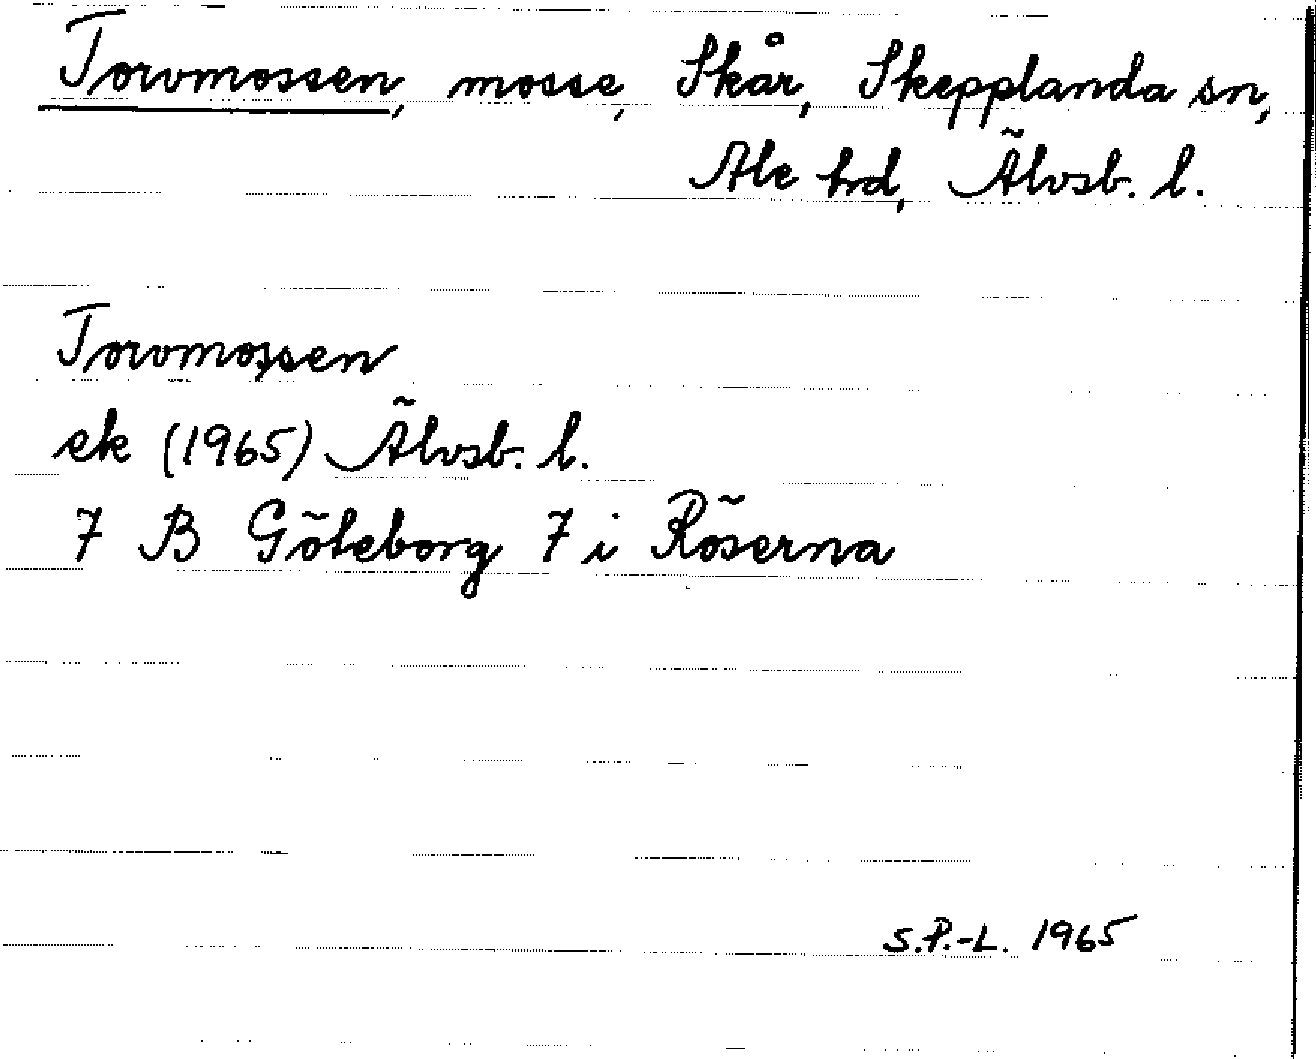 Torvmossen, mosse, Skår, Skepplanda sn,
Ale hrd, Älvsb. l.
Torvmossen
ek (1965) Älvsb. l.
7 B Göteborg 7 i Röserna
S.P.-L. 1965